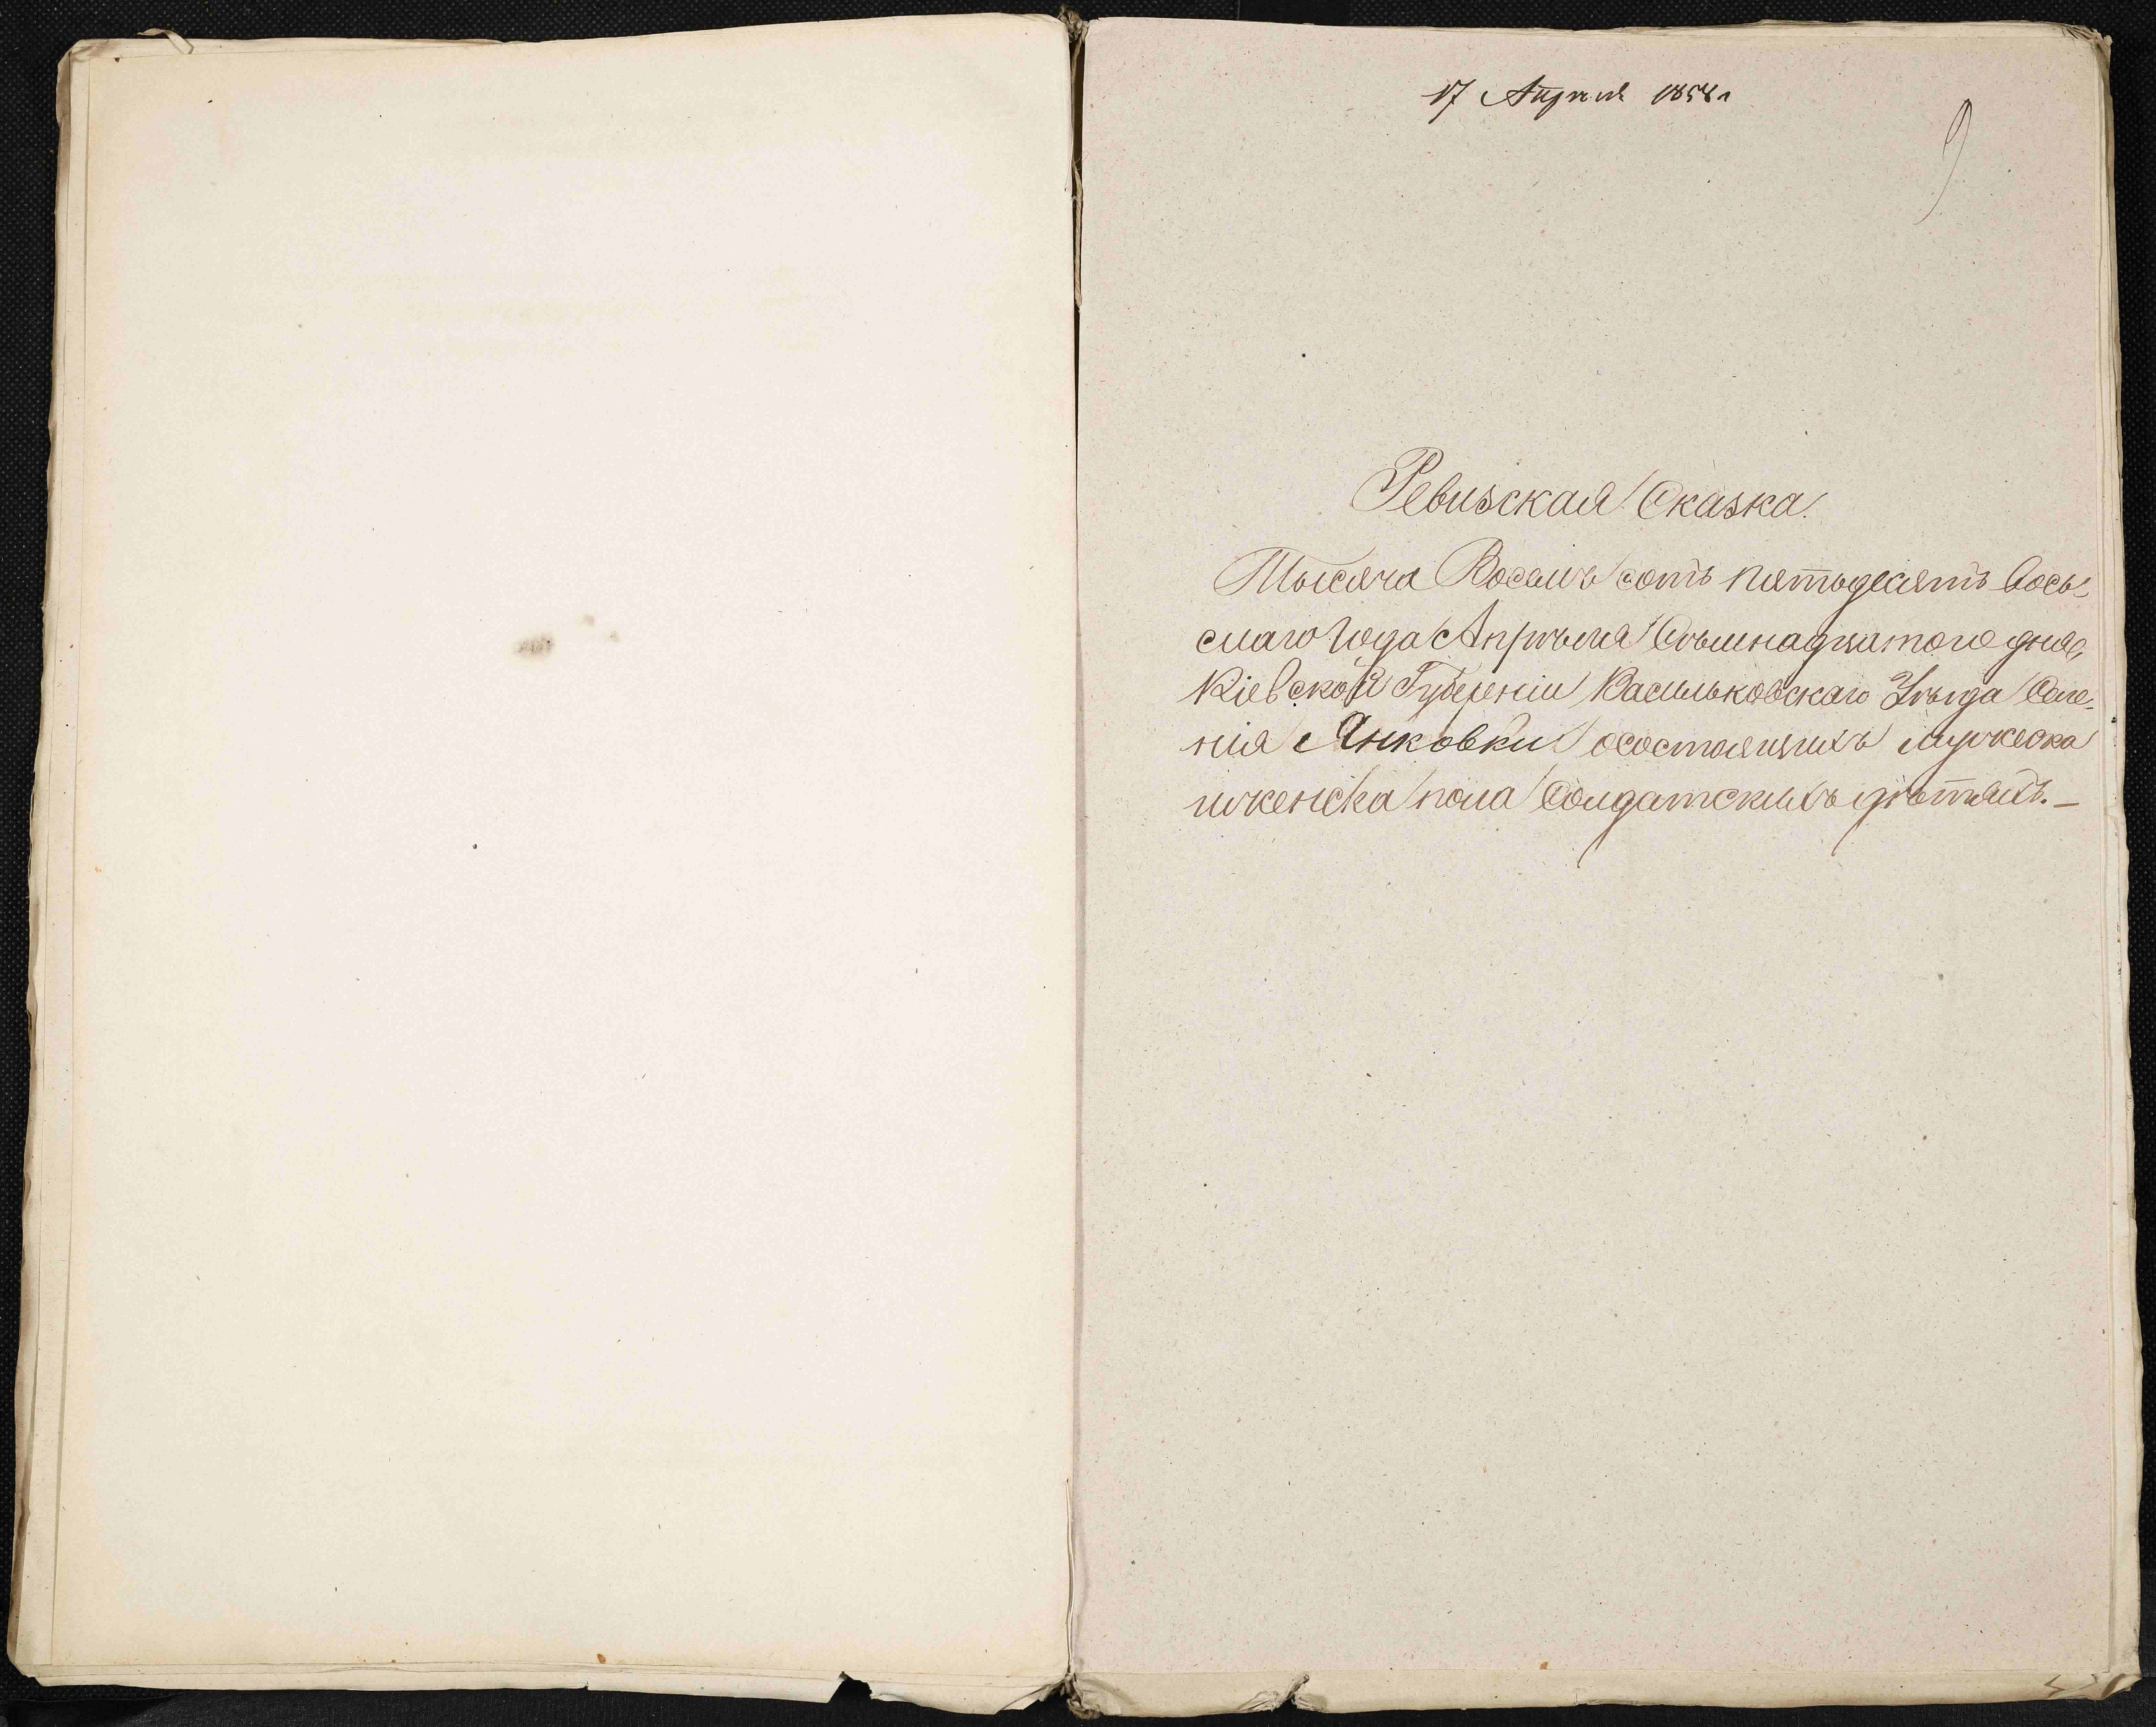 17 Апреля 1858 г
9
Ревизская Сказка.
Тысяча Восемь сотъ пятьдесятъ Вось-
маго Года Апрѣля Семнадцатого дня,
Кіевской Губерніи Васильковскаго Уѣзда Селе-
нія Янковки осостоящихъ мужеска
иженска пола Солдатскихъ дѣтяхъ. –